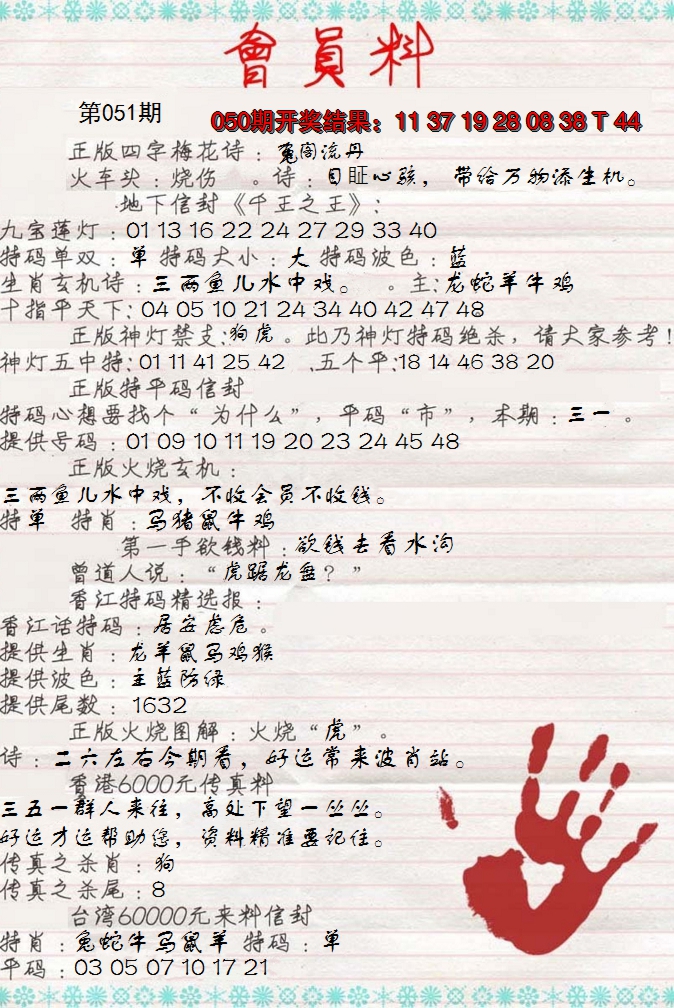 會員料
第051期
050期开奖结果：11 37 19 28 08 38 T 44
正版四字梅花诗：菟阁流丹
火车头：烧伤 。诗：目眶心骇，带给万物添生机。
地下信封《千王之王》：
九宝莲灯：01 13 16 22 24 27 29 33 40
特码单双：单 特码大小：大 特码波色：蓝
生肖玄机诗：三两鱼儿水中戏。 。主：龙蛇羊牛鸡
十指平天下：04 05 10 21 24 34 40 42 47 48
正版神灯禁支：狗虎。此乃神灯特码绝杀，请大家参考！
神灯五中特：01 11 41 25 42 .五个平：18 14 46 38 20
正版特平码信封
特码心想要找个“为什么”，平码“市”，本期：三一。
提供号码：01 09 10 11 19 20 23 24 45 48
正版火烧玄机：
三两鱼儿水中戏，不收会员不收钱。
特单 特肖：马猪鼠牛鸡
第一手欲钱料：欲钱去看水沟
曾道人说：“虎踞龙盘？”
香江特码精选报：
香江话特码：居安虑危。
提供生肖：龙羊鼠马鸡猴
提供波色：主蓝防绿
提供尾数：1632
正版火烧图解：火烧“虎”。
诗：二六左右今期看，好运常来波肖站。
香港6000元传真料
三五一群人来往，高处下望一丛丛。
好运才运帮助您，资料精准要记住。
传真之杀肖：狗
传真之杀尾：8
台湾60000元来料信封
特肖：兔蛇牛马鼠羊 特码：单
平码：03 05 07 10 17 21